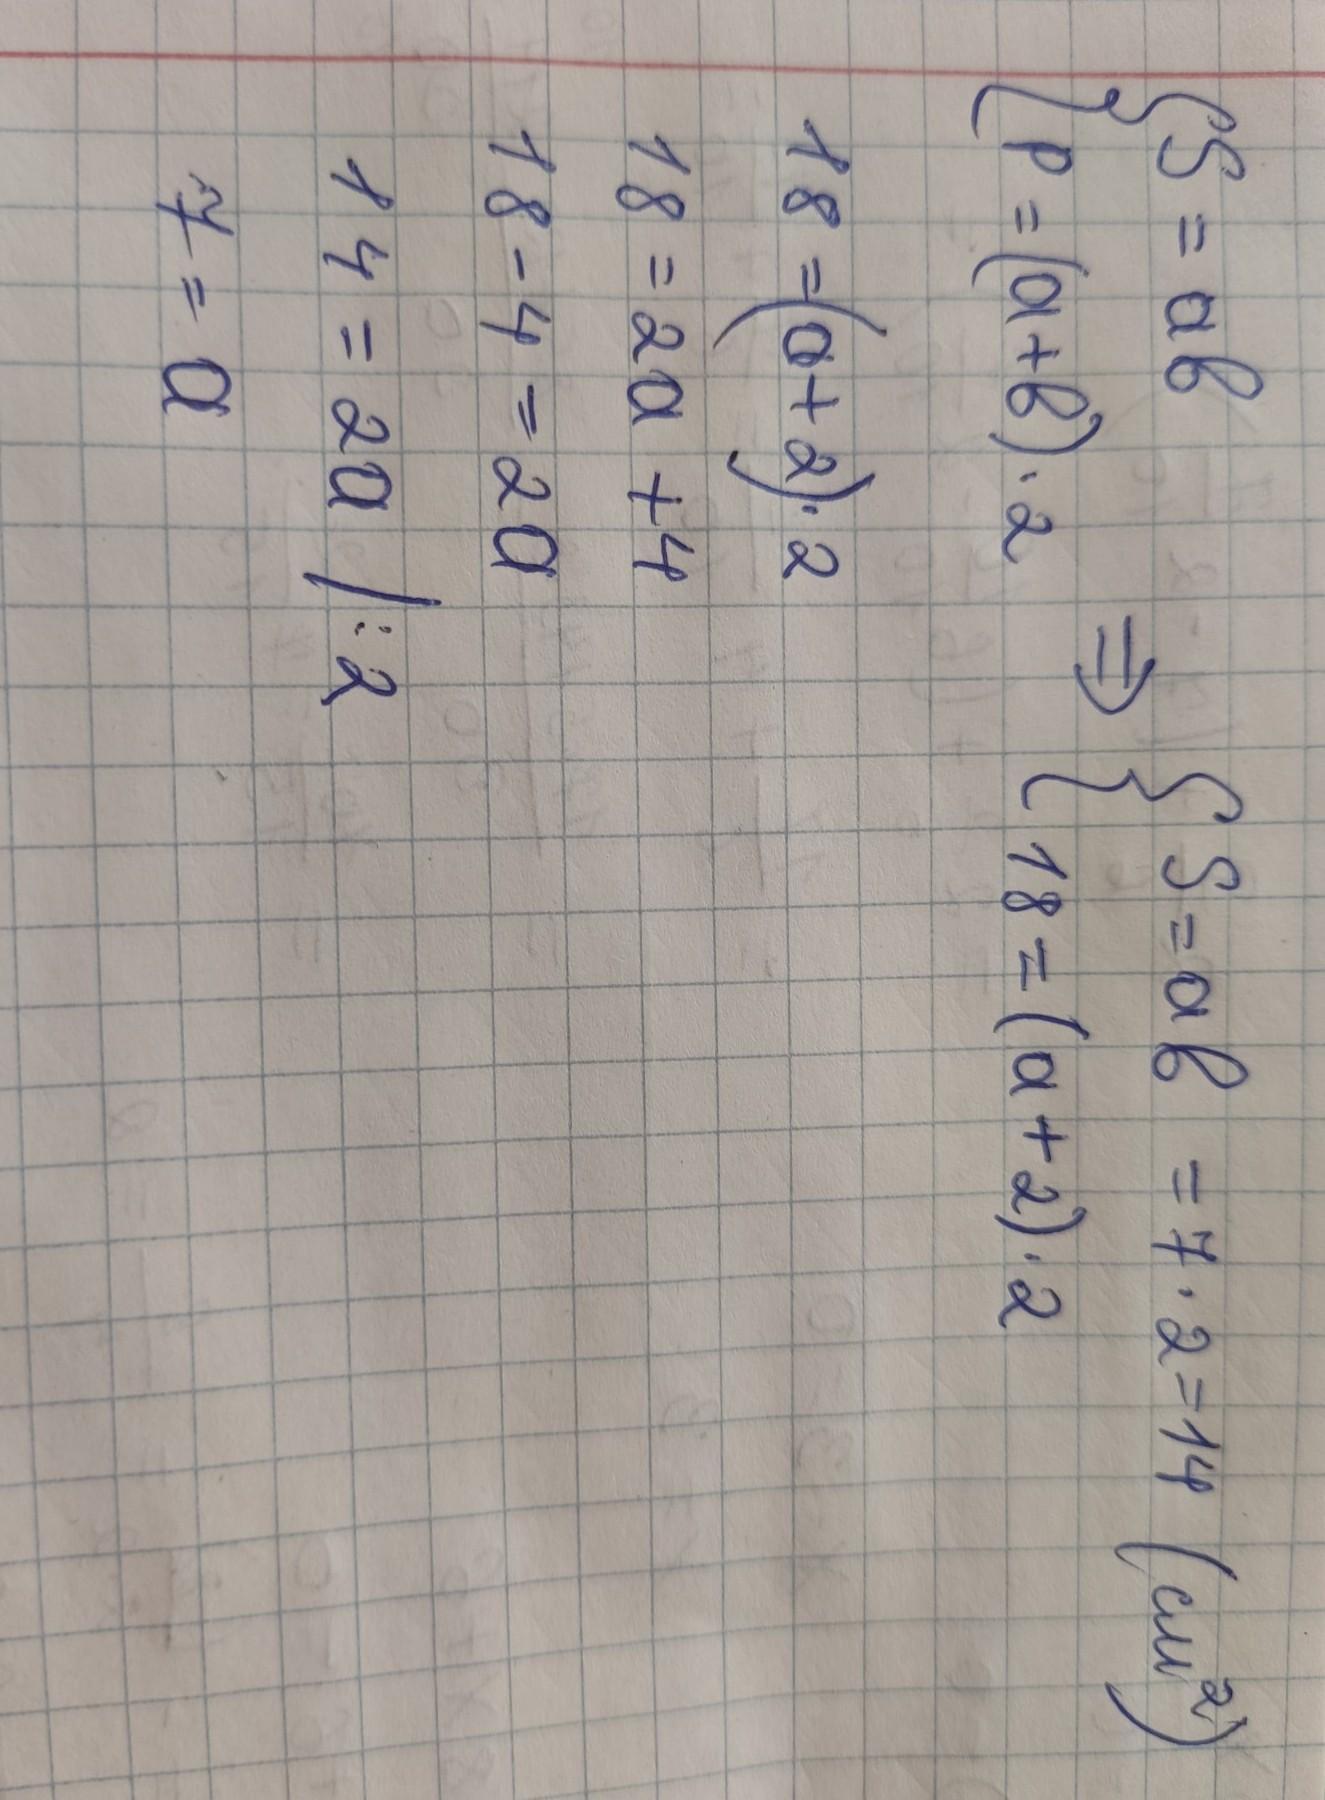 {S = ab ⇒ {S = ab = 7 · 2 = 14 (см²)
{P = (a+b) · 2 {18 = (a + 2) · 2
18 = (a + 2) · 2
18 = 2a + 4
18 - 4 = 2a
14 = 2a /:2
7 = a